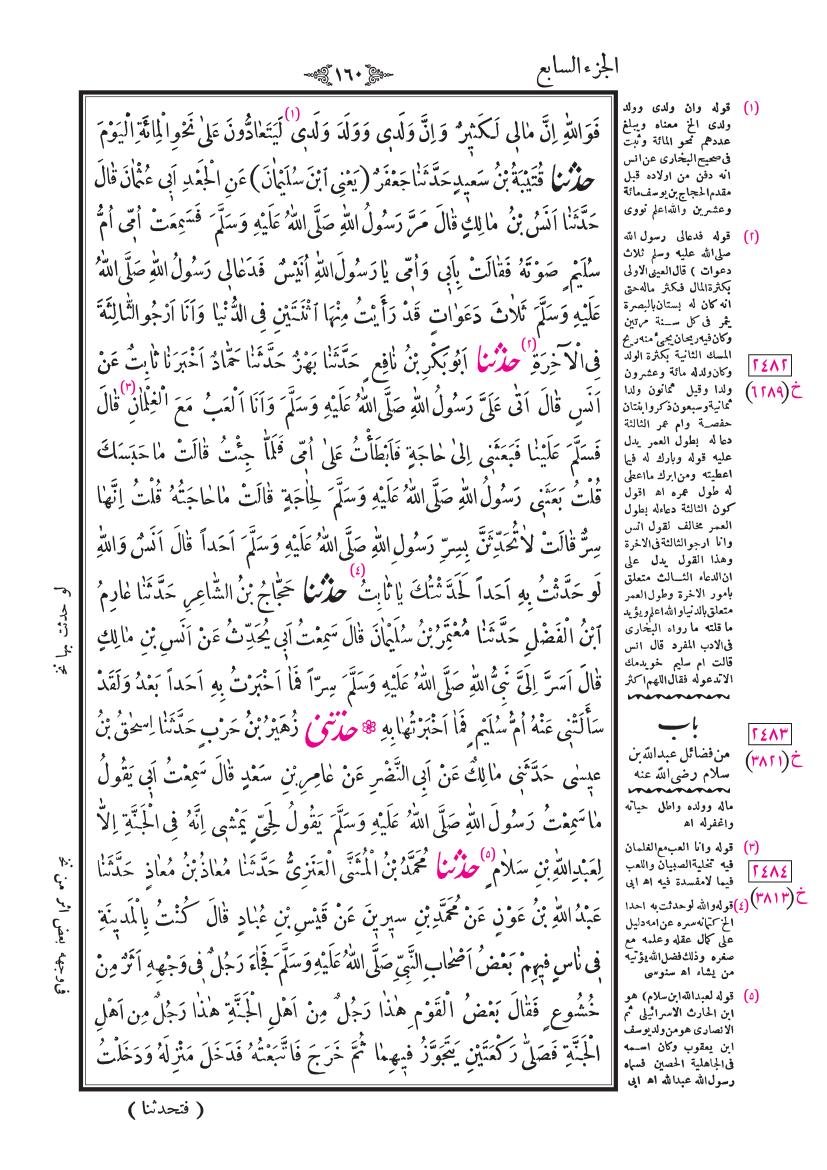 الجزء السابع
١٦٠
فَوَاللهِ اِنَّ مَالِى لَكَثِيرٌ وَاِنَّ وَلَدِى وَوَلَدَ وَلَدِى(١) لَيَتَعَادُّونَ عَلٰى نَحْوِ الْمِائَةِ الْيَوْمَ
حَدَّثَنَا قُتَيْبَةُ بْنُ سَعِيدٍ حَدَّثَنَا جَعْفَرٌ (يَعْنِى ابْنَ سُلَيْمَانَ) عَنِ الْجَعْدِ اَبِى عُثْمَانَ قَالَ
حَدَّثَنَا اَنَسُ بْنُ مَالِكٍ قَالَ مَرَّ رَسُولُ اللهِ صَلَّى اللهُ عَلَيْهِ وَسَلَّمَ فَسَمِعَتْ اُمِّى اُمُّ
سُلَيْمٍ صَوْتَهُ فَقَالَتْ بِاَبِى وَاُمِّى يَا رَسُولَ اللهِ اُنَيْسٌ فَدَعَالِى رَسُولُ اللهِ صَلَّى اللهُ
عَلَيْهِ وَسَلَّمَ ثَلَاثَ دَعَوَاتٍ قَدْ رَأَيْتُ مِنْهَا اثْنَتَيْنِ فِى الدُّنْيَا وَاَنَا اَرْجُو الثَّالِثَةَ
فِى الْآخِرَةِ(٢) حَدَّثَنَا اَبُو بَكْرِ بْنُ نَافِعٍ حَدَّثَنَا بَهْزٌ حَدَّثَنَا حَمَّادٌ اَخْبَرَنَا ثَابِتٌ عَنْ
اَنَسٍ قَالَ اَتٰى عَلَىَّ رَسُولُ اللهِ صَلَّى اللهُ عَلَيْهِ وَسَلَّمَ وَاَنَا اَلْعَبُ مَعَ الْغِلْمَانِ(٣) قَالَ
فَسَلَّمَ عَلَيْنَا فَبَعَثَنِى اِلٰى حَاجَةٍ فَاَبْطَأْتُ عَلٰى اُمِّى فَلَمَّا جِئْتُ قَالَتْ مَا حَبَسَكَ
قُلْتُ بَعَثَنِى رَسُولُ اللهِ صَلَّى اللهُ عَلَيْهِ وَسَلَّمَ لِحَاجَةٍ قَالَتْ مَا حَاجَتُهُ قُلْتُ اِنَّهَا
سِرٌّ قَالَتْ لَا تُحَدِّثَنَّ بِسِرِّ رَسُولِ اللهِ صَلَّى اللهُ عَلَيْهِ وَسَلَّمَ اَحَداً قَالَ اَنَسٌ وَاللهِ
لَوْ حَدَّثْتُ بِهِ اَحَداً لَحَدَّثْتُكَ يَا ثَابِتُ(٤) حَدَّثَنَا حَجَّاجُ بْنُ الشَّاعِرِ حَدَّثَنَا عَارِمُ
ابْنُ الْفَضْلِ حَدَّثَنَا مُعْتَمِرُ بْنُ سُلَيْمَانَ قَالَ سَمِعْتُ اَبِى يُحَدِّثُ عَنْ اَنَسِ بْنِ مَالِكٍ
قَالَ اَسَرَّ اِلَىَّ نَبِىُّ اللهِ صَلَّى اللهُ عَلَيْهِ وَسَلَّمَ سِرّاً فَمَا اَخْبَرْتُ بِهِ اَحَداً بَعْدُ وَلَقَدْ
سَأَلَتْنِى عَنْهُ اُمُّ سُلَيْمٍ فَمَا اَخْبَرْتُهَا بِهِ ❁ حَدَّثَنِى زُهَيْرُ بْنُ حَرْبٍ حَدَّثَنَا اِسْحٰقُ بْنُ
عِيسٰى حَدَّثَنِى مَالِكٌ عَنْ اَبِى النَّضْرِ عَنْ عَامِرِ بْنِ سَعْدٍ قَالَ سَمِعْتُ اَبِى يَقُولُ
مَا سَمِعْتُ رَسُولَ اللهِ صَلَّى اللهُ عَلَيْهِ وَسَلَّمَ يَقُولُ لِحَىٍّ يَمْشِى اِنَّهُ فِى الْجَنَّةِ اِلَّا
لِعَبْدِ اللهِ بْنِ سَلَامٍ(٥) حَدَّثَنَا مُحَمَّدُ بْنُ الْمُثَنَّى الْعَنَزِىُّ حَدَّثَنَا مُعَاذُ بْنُ مُعَاذٍ حَدَّثَنَا
عَبْدُ اللهِ بْنُ عَوْنٍ عَنْ مُحَمَّدِ بْنِ سِيرِينَ عَنْ قَيْسِ بْنِ عُبَادٍ قَالَ كُنْتُ بِالْمَدِينَةِ
فِى نَاسٍ فِيهِمْ بَعْضُ اَصْحَابِ النَّبِىِّ صَلَّى اللهُ عَلَيْهِ وَسَلَّمَ فَجَاءَ رَجُلٌ فِى وَجْهِهِ اَثَرٌ مِنْ
خُشُوعٍ فَقَالَ بَعْضُ الْقَوْمِ هٰذَا رَجُلٌ مِنْ اَهْلِ الْجَنَّةِ هٰذَا رَجُلٌ مِنْ اَهْلِ
الْجَنَّةِ فَصَلّٰى رَكْعَتَيْنِ يَتَجَوَّزُ فِيهِمَا ثُمَّ خَرَجَ فَاتَّبَعْتُهُ فَدَخَلَ مَنْزِلَهُ وَدَخَلْتُ
( فتحدثنا )
(١) قوله وان ولدى وولد
ولدى الخ معناه ويبلغ
عددهم نحو المائة وثبت
فى صحيح البخارى عن انس
انه دفن من اولاده قبل
مقدم الحجاج بن يوسف مائة
وعشرين والله اعلم نووى
(٢) قوله فدعالى رسول الله
صلى الله عليه وسلم ثلاث
دعوات ) قال العينى الاولى
بكثرة المال فكثر ماله حتى
انه كان له بستان بالبصرة
يثمر فى كل سنة مرتين
وكان فيه ريحان يجئ منه ريح
المسك الثانية بكثرة الولد
وكان ولدله مائة وعشرون
ولدا وقيل ثمانون ولدا
ثمانية وسبعون ذكر وابنتان
حفصة وام عمر الثالثة
دعا له بطول العمر يدل
عليه قوله وبارك له فيما
اعطيته ومن ابرك ما اعطى
له طول عمره اه اقول
كون الثالثة دعاءله بطول
العمر مخالف لقول انس
وانا ارجو الثالثة فى الآخرة
وهذا القول يدل على
ان الدعاء الثالث متعلق
بامور الآخرة وطول العمر
متعلق بالدنيا والله اعلم ويؤيد
ما قلته ما رواه البخارى
فى الادب المفرد قال انس
قالت ام سليم خويدمك
الا تدعوله فقال اللهم اكثر
باب
من فضائل عبد الله بن
سلام رضى الله عنه
ماله وولده واطل حياته
واغفرله اه
(٣) قوله وانا العب مع الغلمان
فيه تخلية الصبيان واللعب
فيما لامفسدة فيه اه ابى
(٤) قوله والله لو حدثت به احدا
الخ كتمانه سره عن امه دليل
على كمال عقله وعلمه مع
صغره وذلك فضل الله يؤتيه
من يشاء اه سنوسى
(٥) قوله لعبد الله ابن سلام) هو
ابن الحارث الاسرائيلى ثم
الانصارى هو من ولد يوسف
ابن يعقوب وكان اسمه
فى الجاهلية الحصين فسماه
رسول الله عبد الله اه ابى
٢٤٨٢
خ (٦٢٨٩)
٢٤٨٣
خ (٣٨٢١)
٢٤٨٤
خ (٣٨١٣)
لو حدثت بها نخ
فى وجهه بعض اثر من نخ